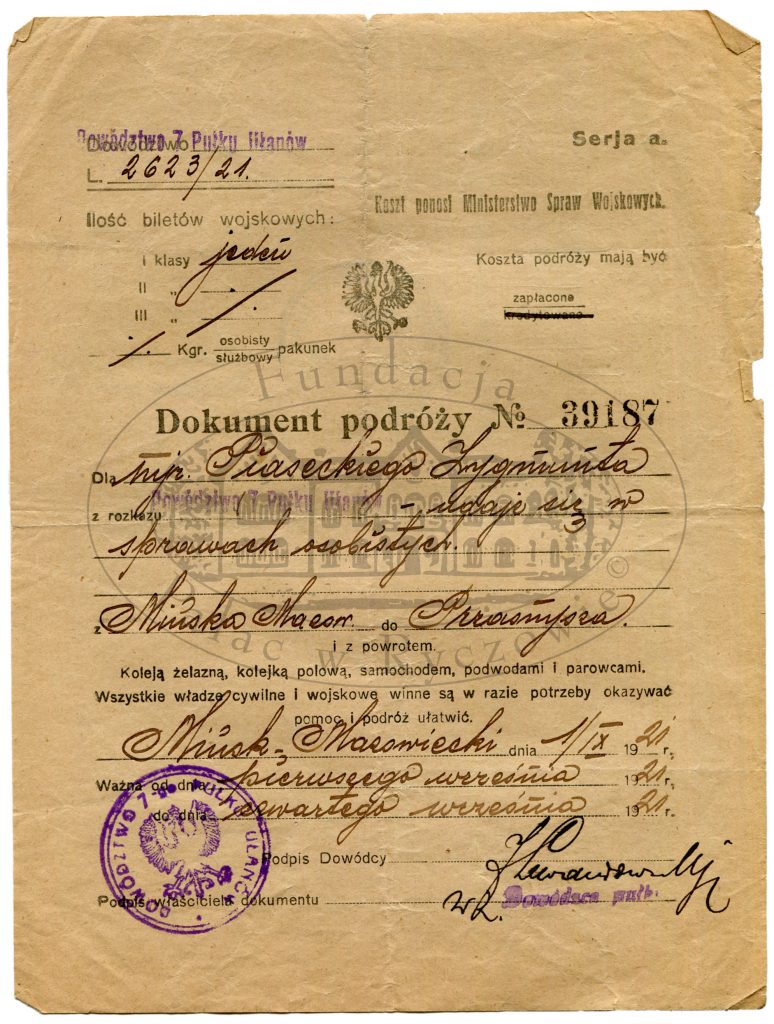 Dowództwo 7 Pułku Ułanów
Dowództwo
Serja a.
L. 2623/21.
Koszt ponosi Ministerstwo Spraw Wojskowych.
Ilość biletów wojskowych:
I klasy jeden
Koszta podróży mają być
II "
zapłacone
III "
kredytowane
Kgr. osobisty
służbowy pakunek
Fundacja
Dokument podróży № 39187
Dla mjr. Piaseckiego Zygmunta
Dowództwa 7 Pułku Ułanów
z rozkazu - udaje się w
sprawach osobistych.
z Mińska Mazow. do Przasnysza.
Pałac w Ryczowie ©
i z powrotem.
Koleją żelazną, kolejką polową, samochodem, podwodami i parowcami.
Wszystkie władze cywilne i wojskowe winne są w razie potrzeby okazywać
pomoc i podróż ułatwić.
Mińsk-Mazowiecki dnia 1/IX 1921 r.
Ważna od dnia pierwszego września 1921 r.
do dnia czwartego września 1921 r.
DOWÓDZTWO 7-go PUŁKU UŁANÓW
Podpis Dowódcy
Podpis właściciela dokumentu
wz. Dowódca pułk.